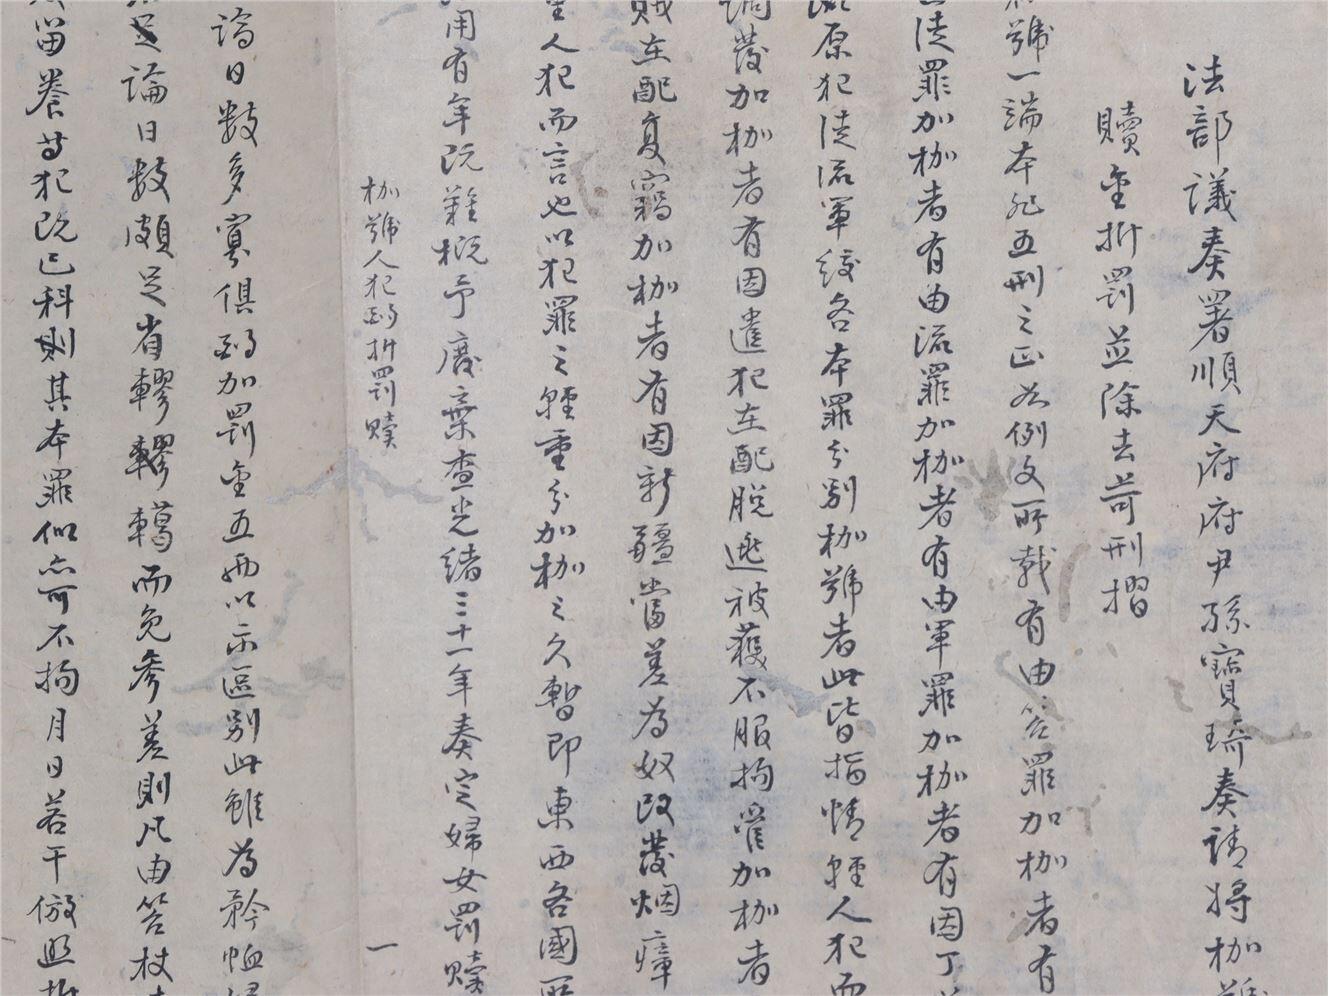 法部議奏署順天府府尹孫寶琦奏請將枷號
贖金折罰並除去苛刑摺
號一端本非五刑之正然例文所載有由笞罪加枷者有
徒罪加枷者有由流罪加枷者有由軍罪加枷者有因丁
原犯徒流軍絞各本罪分別枷號者此皆指情輕人犯而
調發加枷者有因遣犯在配脫逃被獲不服拘管加枷者
賊在配復竊加枷者有因新疆當差為奴改發烟瘴
人犯而言也以犯罪之輕重分加枷之久暫即東西各國
用有年既難概予廢棄查光緒三十一年奏定婦女罰贖
枷號人犯酌折罰贖 一
論日數多寡俱酌加罰金五兩以示區別此雖為矜恤婦
足論日數頗足省轇轇轕而免參差則凡由笞杖
留養等犯既已科則其本罪似亦可不拘月日若干倣照折